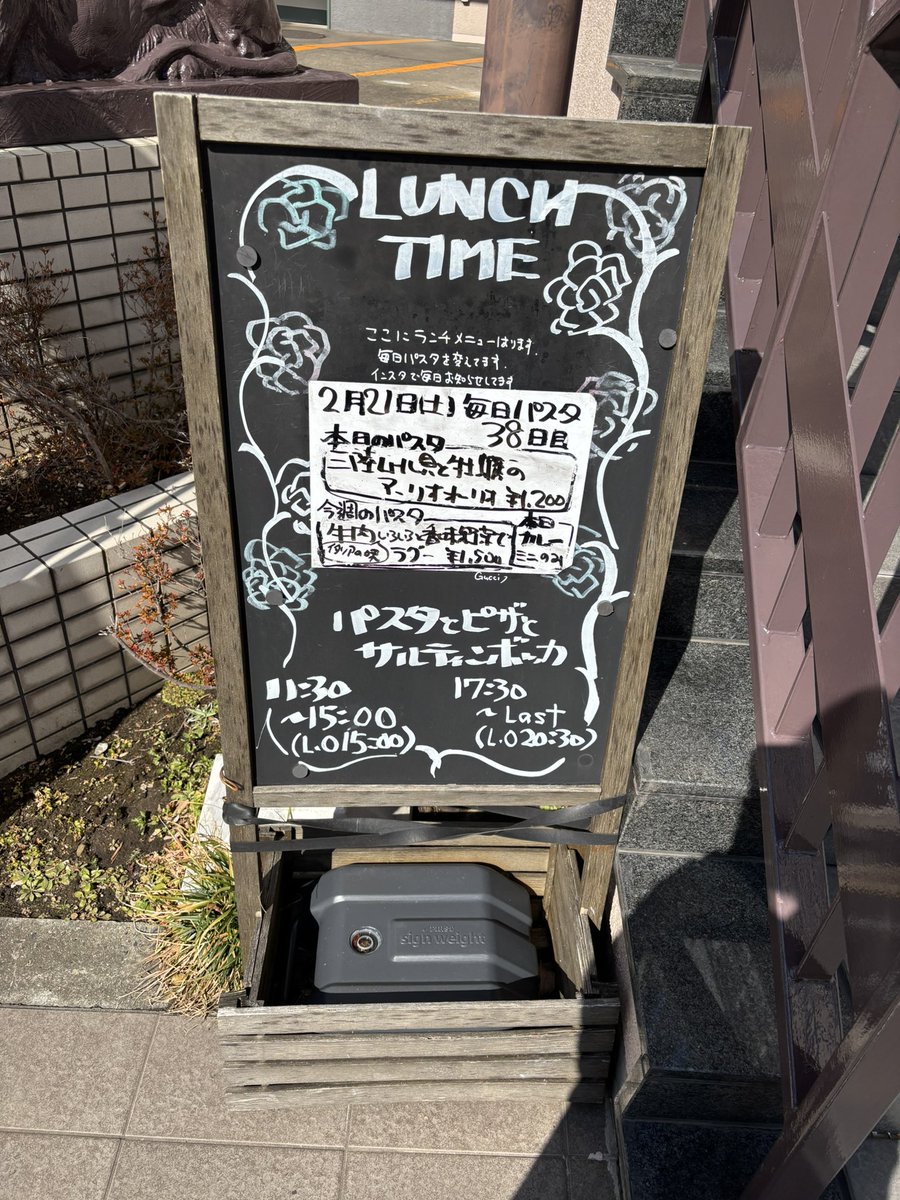 LUNCH
TIME
ここにランチメニューはります.
毎日パスタを変えてます.
インスタで毎日お知らせしてます
2月21日(土) 毎日パスタ
38日目
本日のパスタ
三陸ムール貝と牡蠣の
アーリオオーリオ ¥1,200
今週のパスタ
牛肉いろいろと香味野菜で
イタリアの味
ラグー ¥1,500
本日
カレー
ミニのみ
Gucci
パスタとピザと
サルティンボーカ
11:30
~15:00
(L.O 15:00)
17:30
~Last
(L.O 20:30)
sign weight